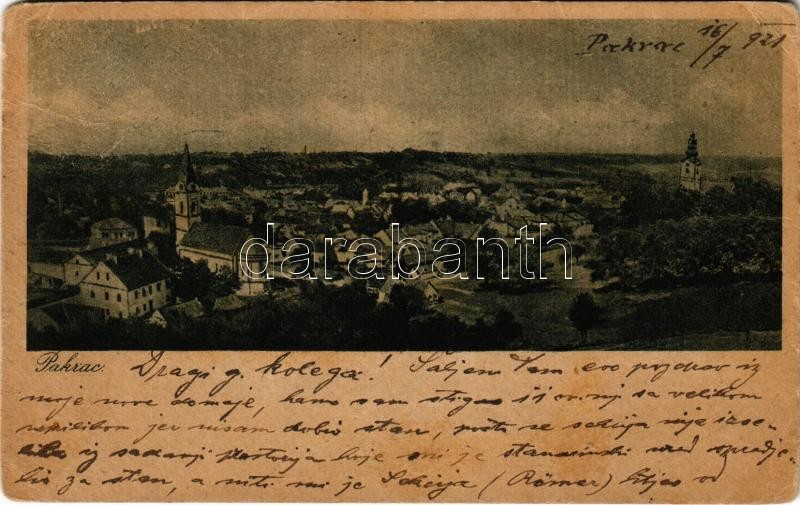 Pakrac 16/7 921
darabanth
Pakrac.
Dragi g. kolega! Šaljem Vam evo pozdrav iz
moje nove domaje, kamo sam stigao sa velikom
neprilikom jer nisam dobio stan, pošto se sekcija nije isse-
lila iz sadanji prostorija koje mi je stanarinski ured opredje-
lio za stan, a niti mi je Sekcija (Römer) htjeo od